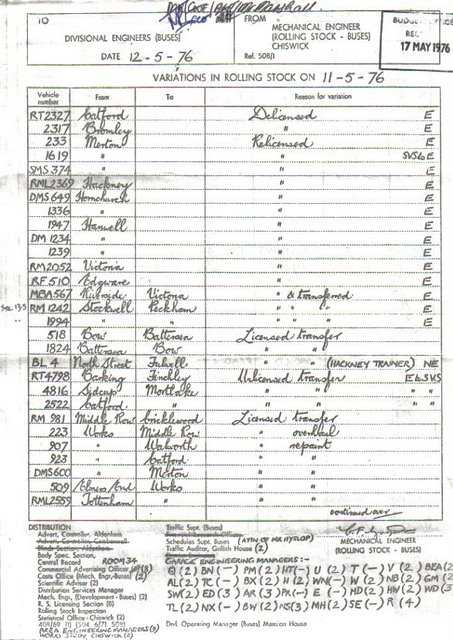 TO
DIVISIONAL ENGINEERS (BUSES)
DATE 12-5-76
FROM
MECHANICAL ENGINEER
(ROLLING STOCK - BUSES)
CHISWICK
Ref. 508/1
17 MAY 1976
VARIATIONS IN ROLLING STOCK ON 11-5-76
Vehicle number From To Reason for variation
RT2327 Catford Delicensed E
2317 Bromley " E
233 Merton Relicensed E
1619 " " SVS&E
SMS 374 " " E
RML2369 Hackney " E
DMS 649 Hornchurch " E
1336 " " E
1947 Hanwell " E
DM 1234 " " E
1239 " " E
RM2052 Victoria " E
RF 510 Edgware " E
MBA567 Riverside Victoria " & transferred E
RM 1242 Stockwell Peckham " " " E
1994 " " " " " E
518 Bow Battersea Licensed transfer
1824 Battersea Bow " "
BL 4 North Street Fulwell " " (HACKNEY TRAINER) NE
RT4798 Barking Finchley Unlicensed transfer E&SVS
4816 Sidcup Mortlake " " " "
2522 Catford " " " " "
RM 981 Middle Row Cricklewood Licensed transfer
223 Works Middle Row " overhaul
907 " Walworth " repaint
923 " Catford " "
DMS600 " Merton " "
509 Elmers End Works " "
RML2559 Tottenham " " "
continued over
DISTRIBUTION
Advert. Controller, Aldenham
Body Supt. Section,
Central Record ROOM 34
Commercial Advertising Officer
Costs Office (Mech. Engr. Buses) (2)
Scientific Adviser (2)
Distribution Services Manager
Mech. Engr. (Development - Buses) (2)
R. S. Licensing Section (8)
Rolling Stock Inspectory
Statistical Office - Chiswick (2)
AREA ENGINEERING MANAGERS
WORKS STUDY, CHISWICK (2)
Traffic Supt. (Buses)
Schedules Supt. (Buses) (ATTN OF MR HYSLOP)
Traffic Auditor, Gulich House (2)
MECHANICAL ENGINEER
(ROLLING STOCK - BUSES)
GARAGE ENGINEERING MANAGERS :-
Divl. Operating Manager (Buses) Mansion House